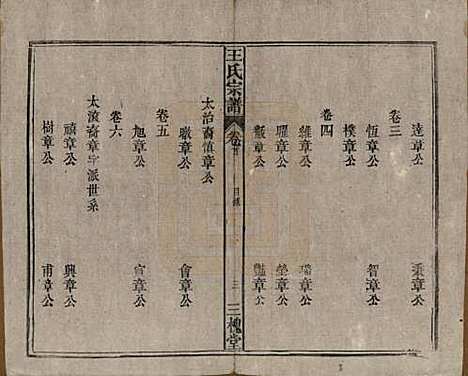 達章公 秉章公
卷三
恆章公 智章公
樸章公
卷四
維章公 璐章公
曜章公 瑩章公
黻章公 豔章公
王氏宗譜 卷首 目錄 三 三槐堂
太治裔慎章公
璈章公 會章公
卷五
旭章公 宣章公
卷六
太濱裔章字派世系
禧章公 興章公
樹章公 甫章公